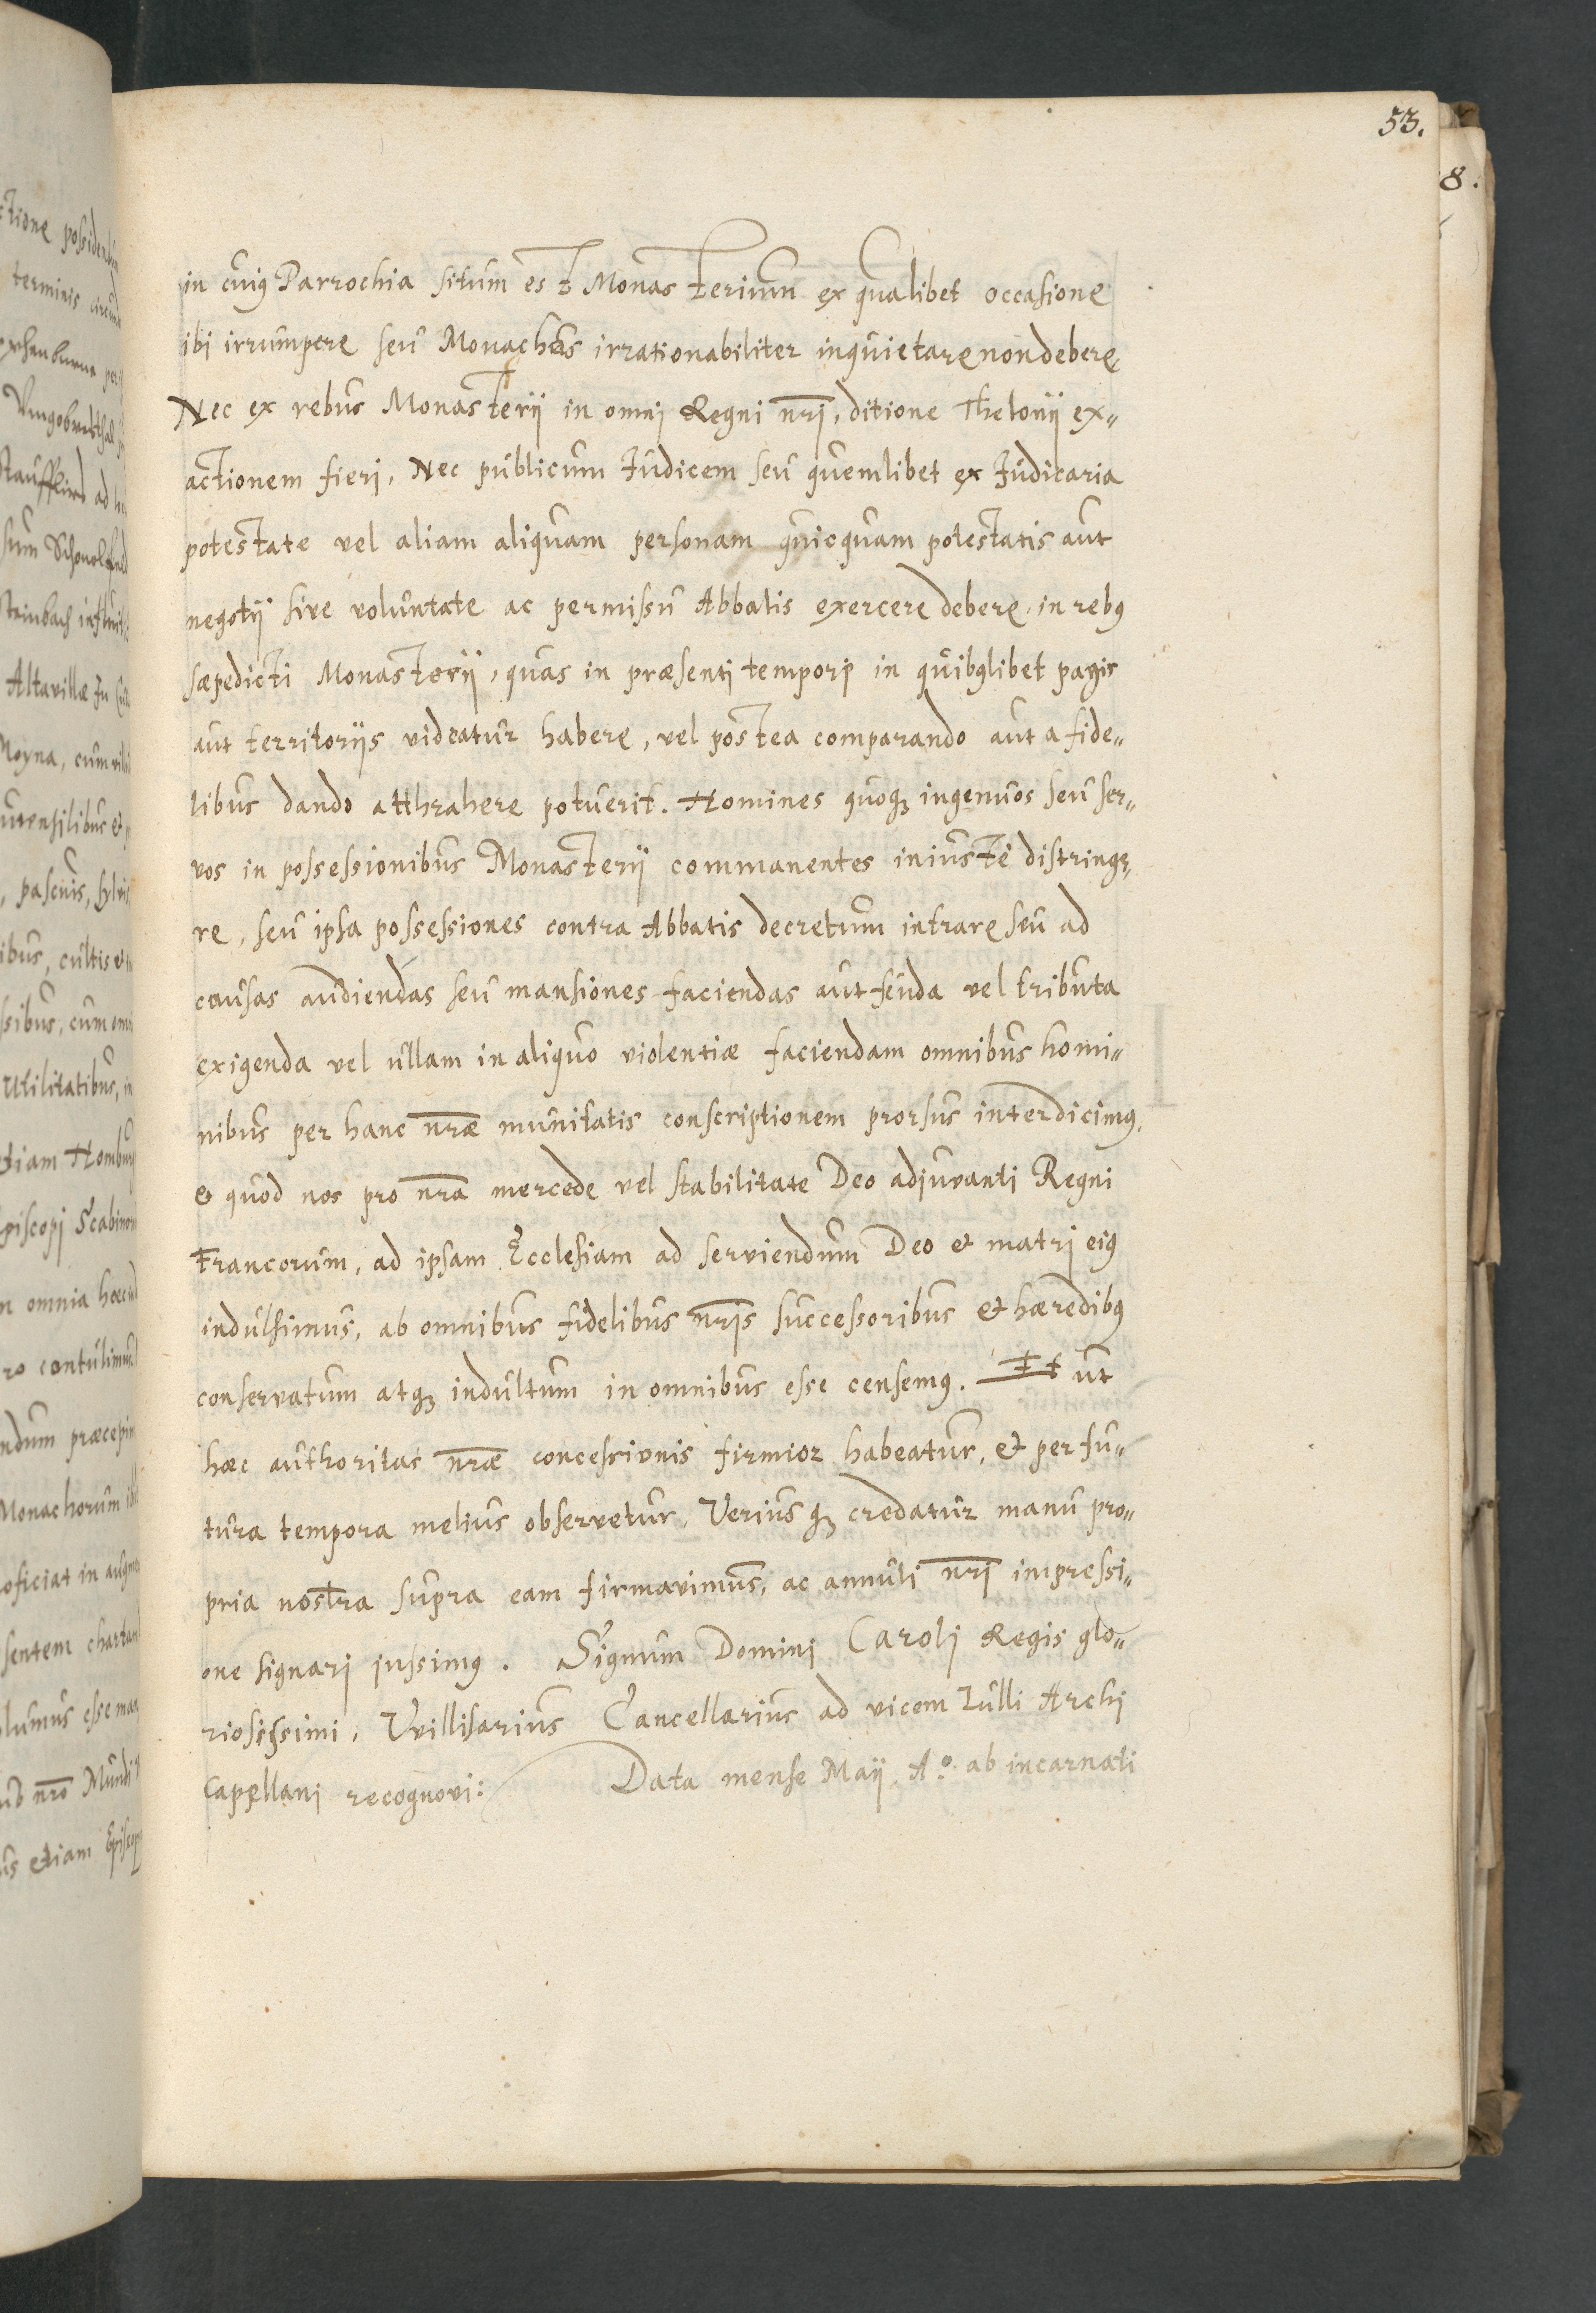 53.
8.
in cuiꝰ Parrochia situm est Monasterium ex qualibet occasione
ibi irrumpere seu Monachos irrationabiliter inquietare non debere,
Nec ex rebus Monasterij in omni Regni nr̃i, ditione Thelonij ex„
actionem fieri, Nec publicum Iudicem seu quemlibet ex Iudicaria
potestate vel aliam aliquam personam quicquam potestatis aut
negotij sive voluntate ac permissu Abbatis exercere debere, in rebꝰ
sæpedicti Monasterij, quas in præsenti tempori in quibꝰlibet pagis
aut territorijs videatur habere, vel postea comparando aut a fide„
libus dando atthrahere potuerit. Homines quoqꝫ ingenuos seu ser„
vos in possessionibus Monasterij commanentes iniustè distringe„
re, seu ipsa possessiones contra Abbatis decretum intrare seu ad
causas audiendas seu mansiones faciendas aut feuda vel tributa
exigenda vel ullam in aliquo violentiæ faciendam omnibus homi„
nibus per hanc nr̃æ munitatis conscriptionem prorsus interdicimꝰ,
& quod nos pro nr̃a mercede vel stabilitate Deo adjuvanti Regni
Francorum, ad ipsam Ecclesiam ad serviendum Deo & matri eiꝰ
indulsimus, ab omnibus fidelibus nr̃is successoribus & hæredibꝰ
conservatum atqꝫ indultum in omnibus esse censemꝰ. Et ut
hæc authoritas nr̃æ concessionis firmior habeatur, & per fu„
tura tempora melius observetur, Verius qꝫ credatur manu pro„
pria nostra supra eam firmavimus, ac annuli nr̃i impressi„
one signari jussimꝰ. Signum Domini Caroli Regis glo„
riosissimi, Uvillisarius Cancellarius ad vicem Lulli Archi
Capellani recognovi: Data mense Maij, Aº. ab incarnati